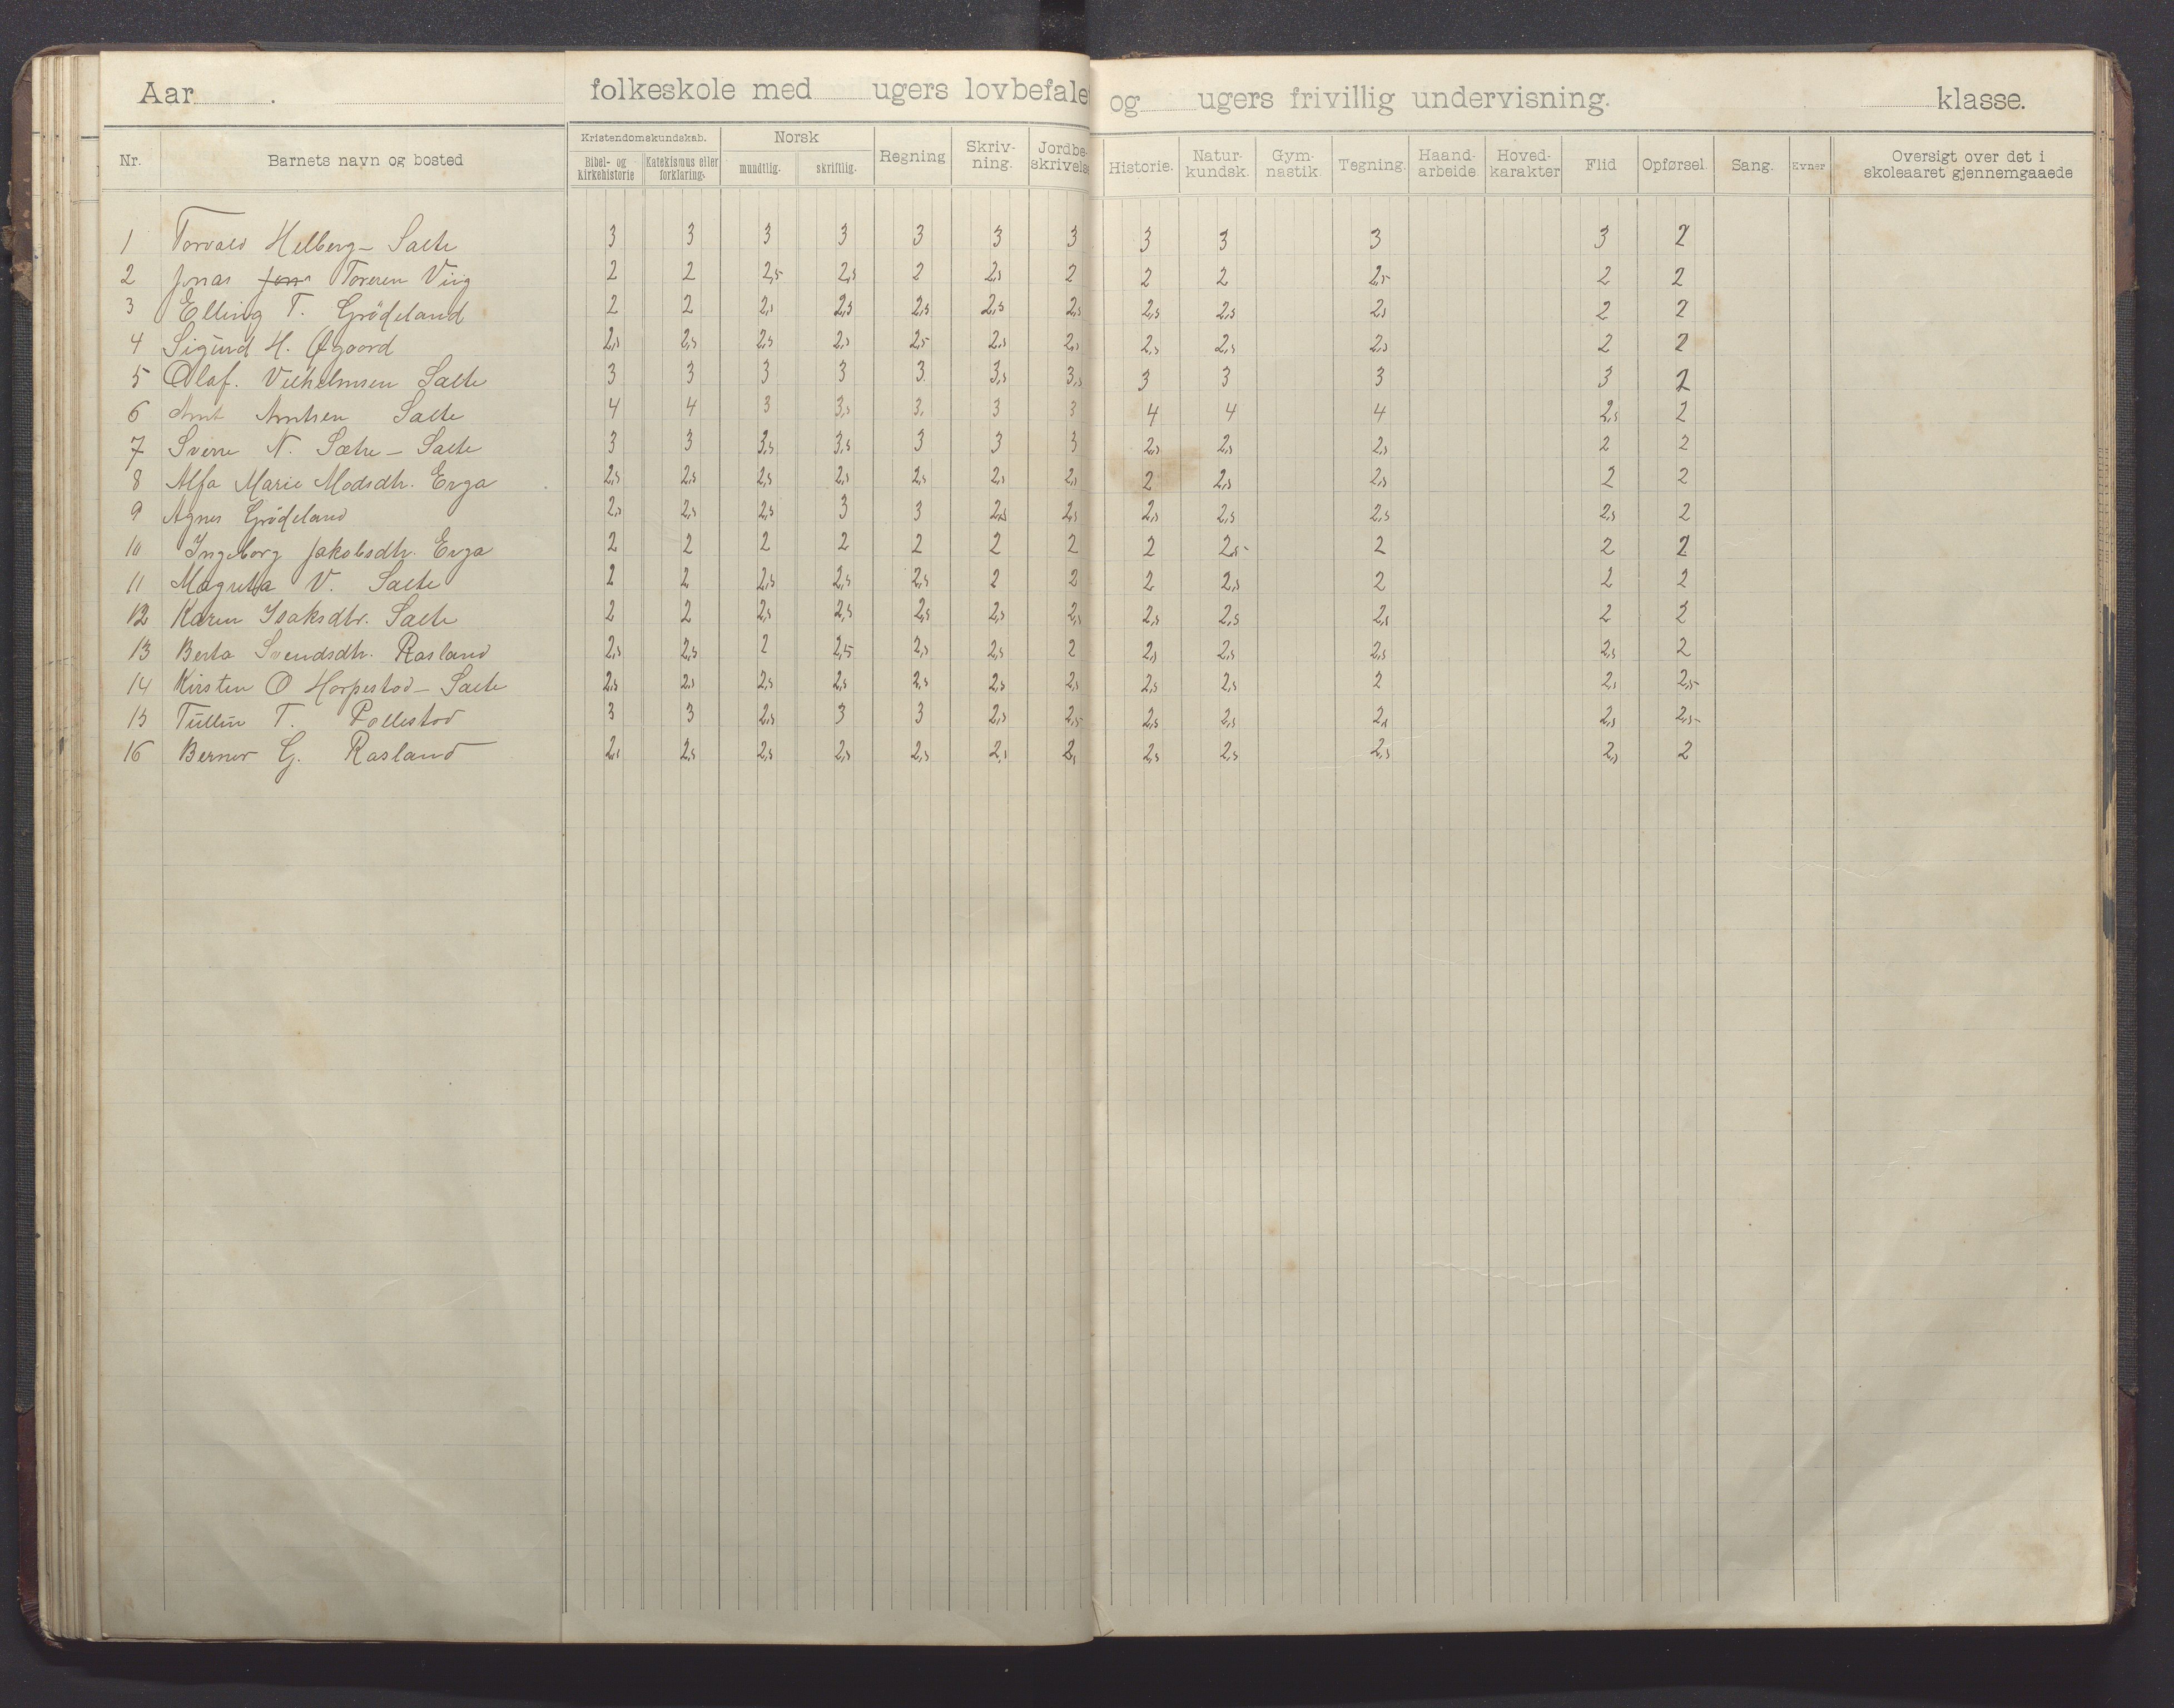 Aar . folkeskole med ugers lovbefalet og ugers frivillig undervisning. klasse.
Nr. Barnets navn og bosted Kristendomskundskab. Bibel- og Kirkehistorie Katekismus eller forklaring. Norsk mundtlig. skriftlig. Regning Skriv-ning. Jordbe-skrivelse Historie. Natur-kundsk. Gym-nastik. Tegning. Haand-arbeide. Hoved-karakter Flid Opførsel. Sang. Evner Oversigt over det i skoleaaret gjennemgaaede
1 Torvald Helberg - Salte 3 3 3 3 3 3 3 3 3 3 3 2
2 Jonas Toresen Vig 2 2 2,5 2,5 2 2,5 2 2 2 2,5 2 2
3 Elling T. Grödeland 2 2 2,5 2,5 2,5 2,5 2,5 2,5 2,5 2,5 2 2
4 Sigurd H. Øgaard 2,5 2,5 2,5 2,5 2,5 2,5 2,5 2,5 2,5 2,5 2 2
5 Olaf. Vilhelmsen Salte 3 3 3 3 3 3,5 3,5 3 3 3 3 2
6 Arnt Arntsen Salte 4 4 3 3,5 3 3 3 4 4 4 2,5 2
7 Sverre N. Sætre - Salte 3 3 3,5 3,5 3 3 3 2,5 2,5 2,5 2 2
8 Alfa Marie Madsdtr. Erga 2,5 2,5 2,5 2,5 2,5 2,5 2,5 2 2,5 2,5 2 2
9 Agnes Grödeland 2,5 2,5 2,5 3 3 2,5 2,5 2,5 2,5 2,5 2,5 2
10 Ingeborg Jakobsdtr. Erga 2 2 2 2 2 2 2 2 2,5 2 2 2
11 Magretha V. Salte 2 2 2,5 2,5 2,5 2 2 2 2,5 2 2 2
12 Karen Isaksdtr. Salte 2 2 2,5 2,5 2,5 2,5 2,5 2,5 2,5 2,5 2 2
13 Berta Svendsdtr. Rasland 2,5 2,5 2 2,5 2,5 2,5 2 2,5 2,5 2,5 2,5 2
14 Kirsten O Harpestad - Salte 2,5 2,5 2,5 2,5 2,5 2,5 2,5 2,5 2,5 2 2,5 2,5
15 Tullin T. Pollestad 3 3 2,5 3 3 2,5 2,5 2,5 2,5 2,5 2,5 2,5
16 Berner G. Rasland 2,5 2,5 2,5 2,5 2,5 2,5 2,5 2,5 2,5 2,5 2,5 2